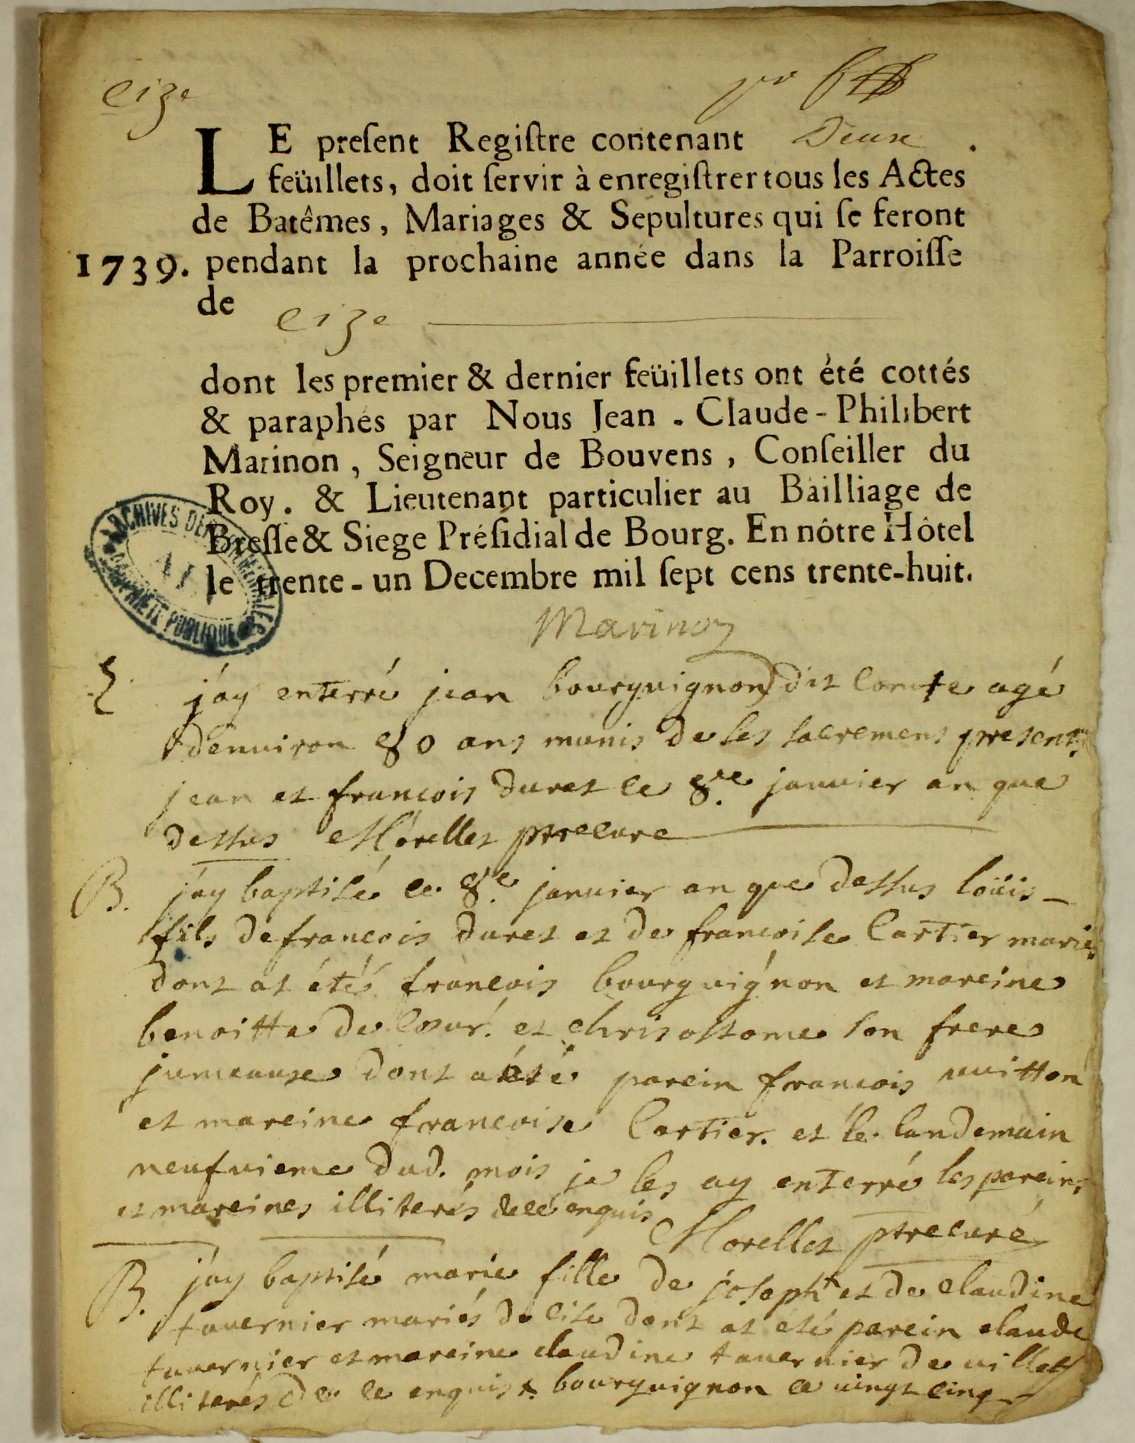 Eize
LE preſent Regiſtre contenant Deux
feüillets, doit ſervir à enregiſtrer tous les Actes
de Batêmes, Mariages & Sepultures qui ſe feront
1739. pendant la prochaine année dans la Parroiſſe
de Eize
dont les premier & dernier feüillets ont été cottés
& paraphés par Nous Jean-Claude-Philibert
Marinon, Seigneur de Bouvens, Conſeiller du
Roy. & Lieutenant particulier au Bailliage de
Breſſe & Siege Préſidial de Bourg. En nôtre Hôtel
le trente-un Decembre mil ſept cens trente-huit.
ARCHIVES PROPRIÉTÉ PUBLIQUE
Marinon
j'ay enterré jean bourguignon dit Comte agé
d'enuiron 80 ans munis de ses sacremens present
jean et francois duret ce 8.e januier an que
dessus Morellet ptre curé
B. j'ay baptisé ce 8.e januier an que dessus loüis
fils de francois duret et de francoise Cartier mariés
dont at étés francois bourguignon et mareine
benoitte de et chrisostome son frere
jumeause dont a été parein francois uuitton
et mareine francoise Cartier. et le landemain
neufuieme dud. mois je les ay enterré les pareins
et mareines illiterés de ce enquis Morellet ptre curé
B. j'ay baptisé marie fille de joseph et de claudine
tauernier mariés de Eise dont at eté parein claude
tauernier et mareine claudine tauernier de
illiterés de ce enquis bourguignon ce uingt cinq